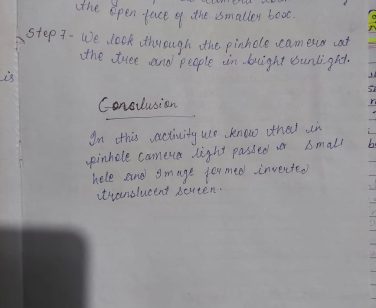 the open face of the smaller box.
Step 7 - We look through the pinhole camera at
the tree and people in bright sunlight.
is
Conclusion
In this activity we know that in
pinhole camera light passed a small
hole and Image formed inverted
translucent screen.